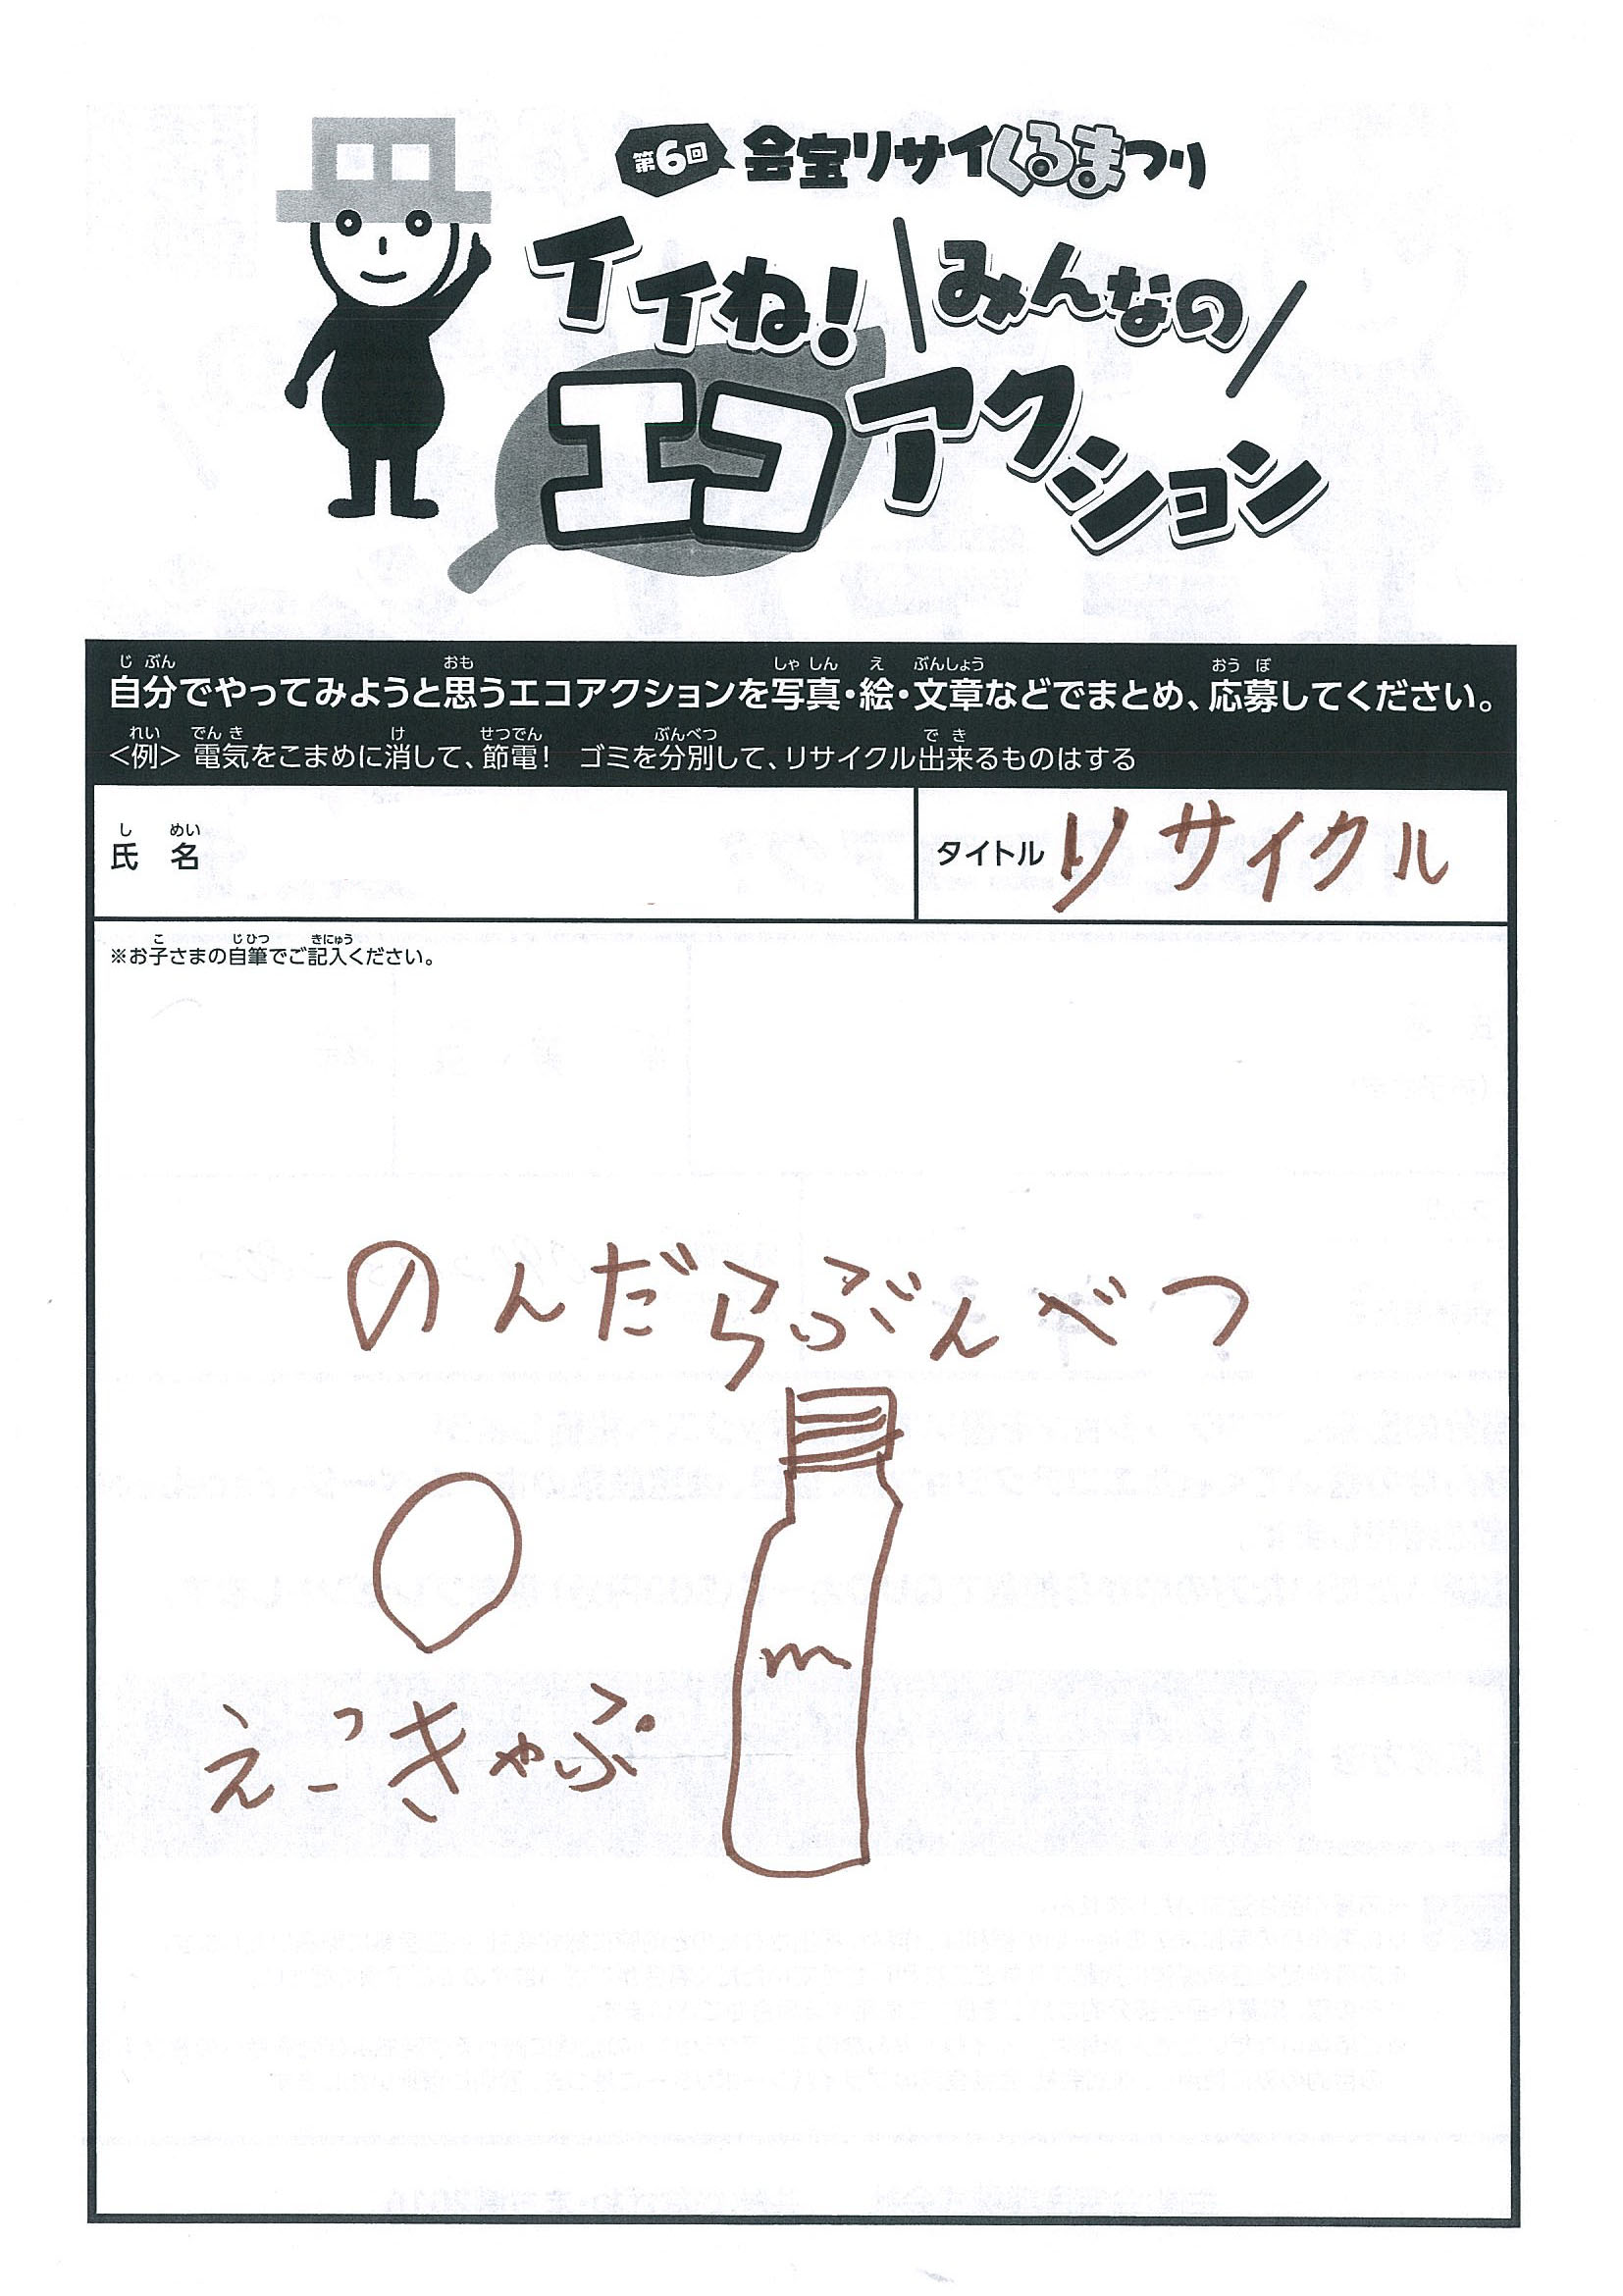 第6回 会宝リサイくるまつり
イイね! みんなの
エコアクション
自分でやってみようと思うエコアクションを写真・絵・文章などでまとめ、応募してください。
<例> 電気をこまめに消して、節電! ゴミを分別して、リサイクル出来るものはする
氏名
タイトル リサイクル
※お子さまの自筆でご記入ください。
のんだらぶんべつ
m
えこきゃぷ